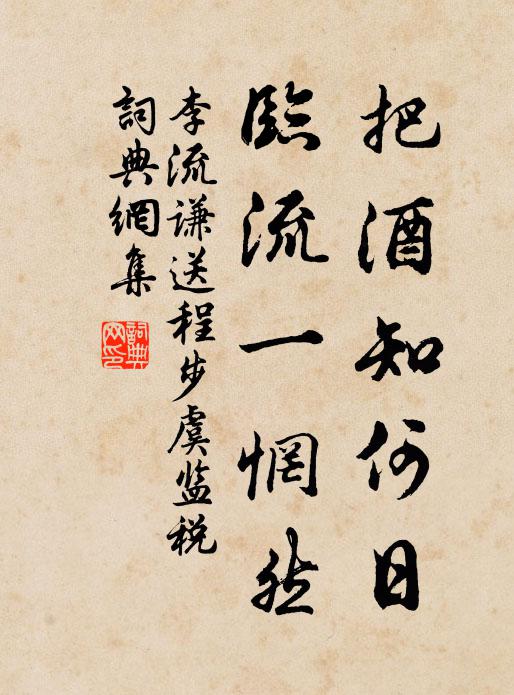 把酒知何日
臨流一惘然
李流謙送程步虞监税
詞典網集
詞典網印